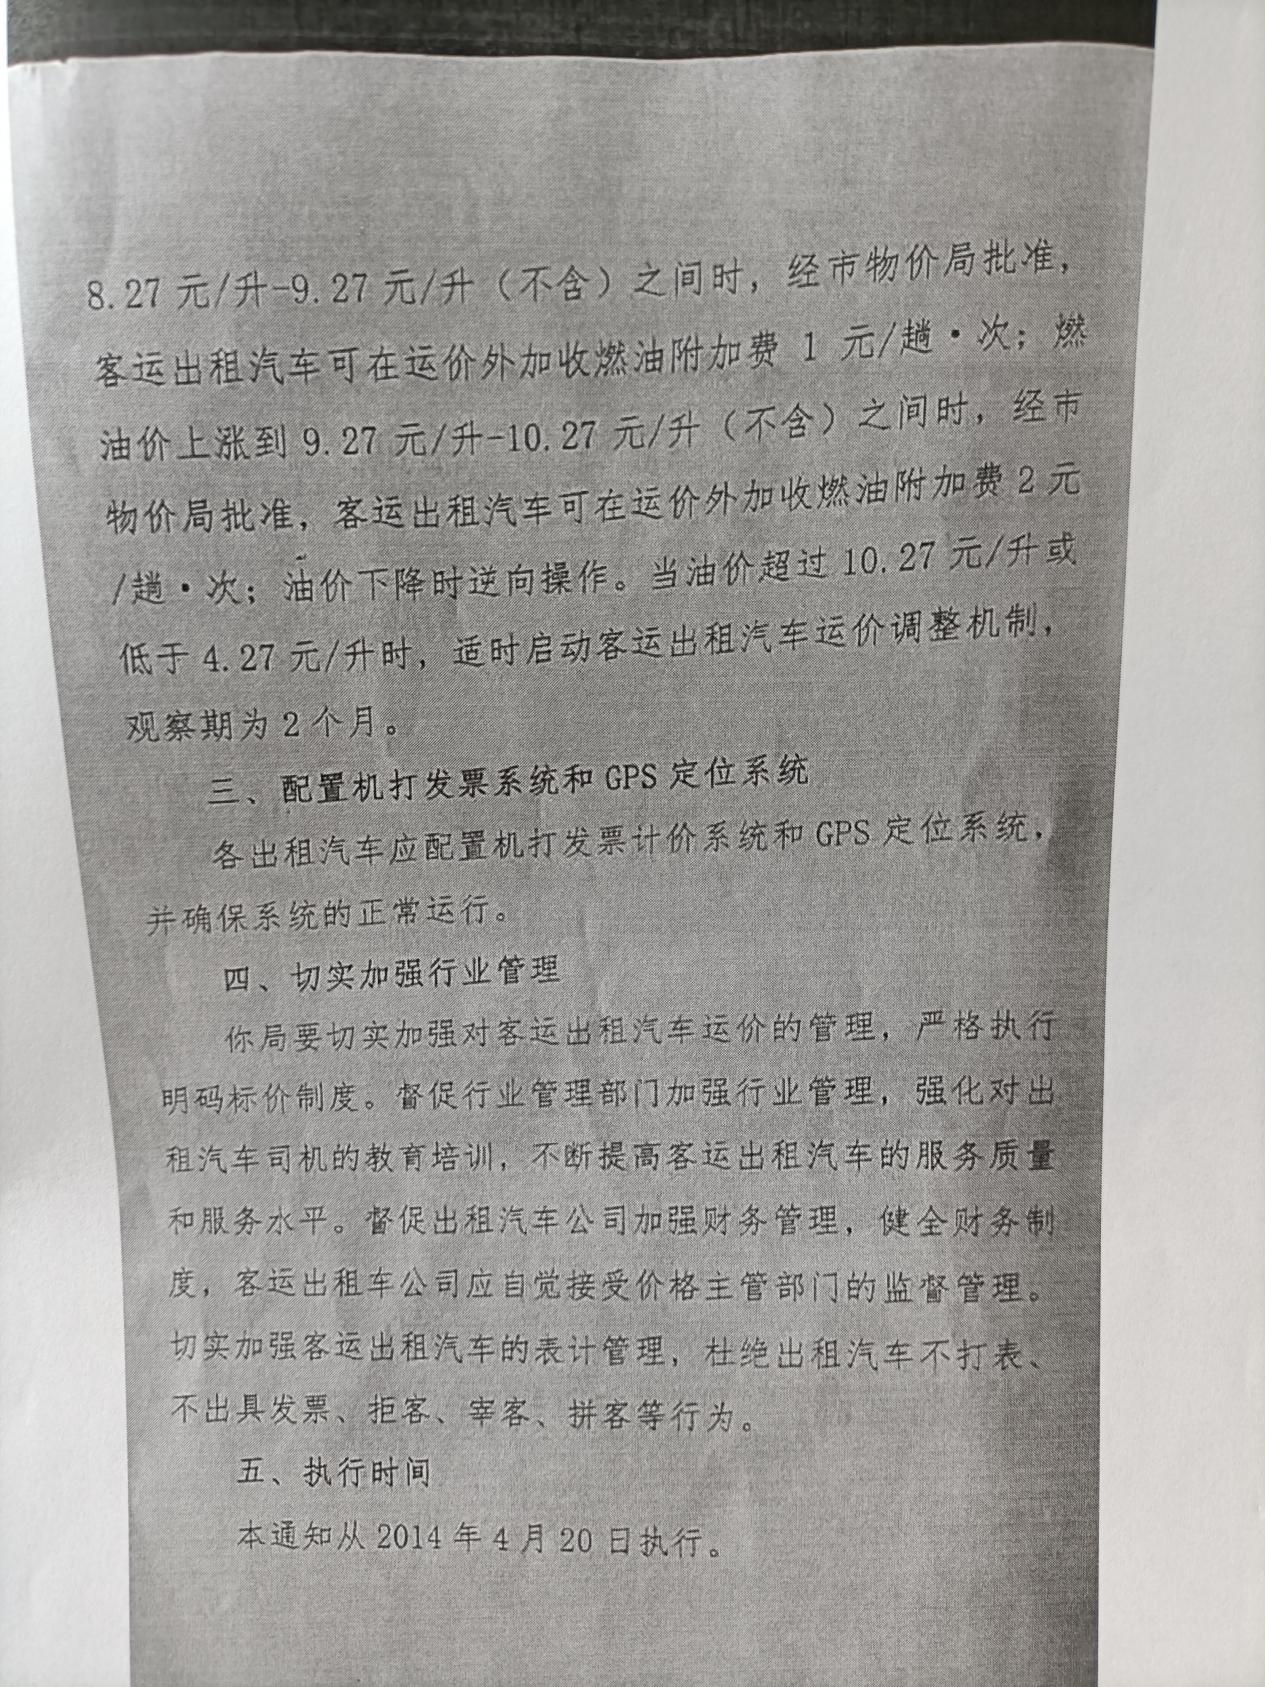 8.27 元/升-9.27 元/升（不含）之间时，经市物价局批准，
客运出租汽车可在运价外加收燃油附加费 1 元/趟·次；燃
油价上涨到 9.27 元/升-10.27 元/升（不含）之间时，经市
物价局批准，客运出租汽车可在运价外加收燃油附加费 2 元
/趟·次；油价下降时逆向操作。当油价超过 10.27 元/升或
低于 4.27 元/升时，适时启动客运出租汽车运价调整机制，
观察期为 2 个月。
三、配置机打发票系统和 GPS 定位系统
各出租汽车应配置机打发票计价系统和 GPS 定位系统，
并确保系统的正常运行。
四、切实加强行业管理
你局要切实加强对客运出租汽车运价的管理，严格执行
明码标价制度。督促行业管理部门加强行业管理，强化对出
租汽车司机的教育培训，不断提高客运出租汽车的服务质量
和服务水平。督促出租汽车公司加强财务管理，健全财务制
度，客运出租车公司应自觉接受价格主管部门的监督管理。
切实加强客运出租汽车的表计管理，杜绝出租汽车不打表、
不出具发票、拒客、宰客、拼客等行为。
五、执行时间
本通知从 2014 年 4 月 20 日执行。